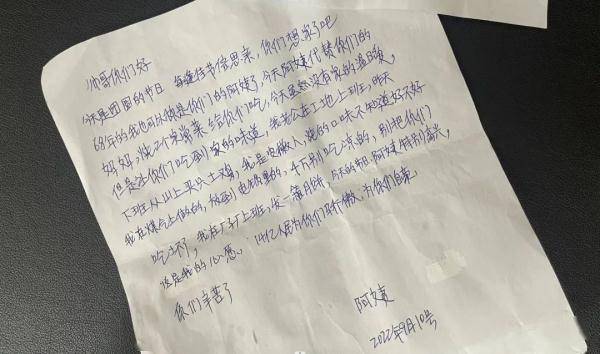 帅哥你们好
今天是团圆的节日 每逢佳节倍思亲，你们想家了吧
68年的我也可以做是你们的阿姨了，今天阿姨代替你们的
妈妈，烧2个家常菜给你们吃，今天虽然没有家的温暖，
但是让你们吃到家的味道，我老公在工地上班，昨天
下班从山上买只土鸡，我是安徽人，烧的口味不知道好不好
我在煤气上做的，放到电锅里的，千万别吃凉的，别把你们
吃坏了，我在厂上班，发一箱月饼，今天的节日阿姨特别高兴，
这是我的心愿。14亿人因为你们骄傲，为你们自豪。
你们辛苦了
阿姨
2022年9月10号